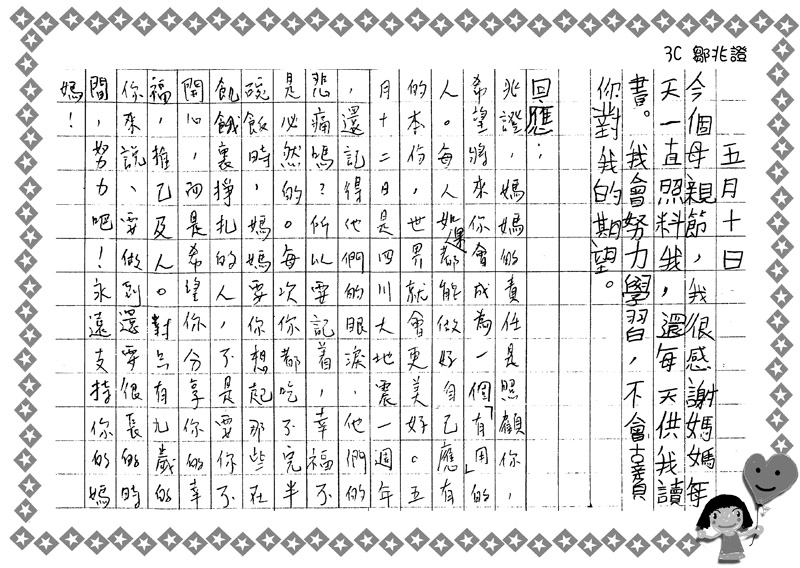 3C 鄒兆證
五月十日
今個母親節，我很感謝媽媽每
天一直照料我，還每天供我讀
書。我會努力學習，不會辜負
你對我的期望。
回應：
兆證，媽媽的責任是照顧你，
希望將來你會成為一個「有用」的
人。每人如果都能做好自己應有
的本份，世界就會更美好。五
月十二日，是四川大地震一週年
，還記得他們的眼淚，他們的
悲痛嗎？所以要記着，幸福不
是必然的。每次你都吃不完半
碗飯時，媽媽要你想起那些在
飢餓裏掙扎的人，不是要你不
開心，而是希望你分享你的幸
福，推己及人。對只有九歲的
你來說、要做到還要很長的時
間，努力吧！永遠支持你的媽
媽！